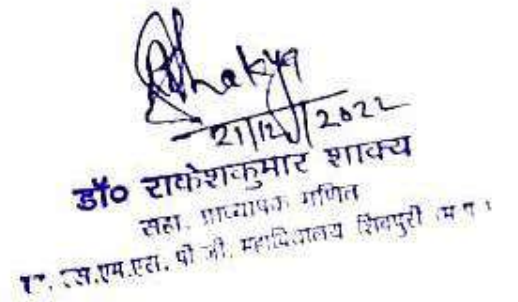 Rshakya
21/12/2022
डॉ० राकेशकुमार शाक्य
सहा. प्राध्यापक गणित
एस.एम.एस. पी जी. महाविद्यालय शिवपुरी